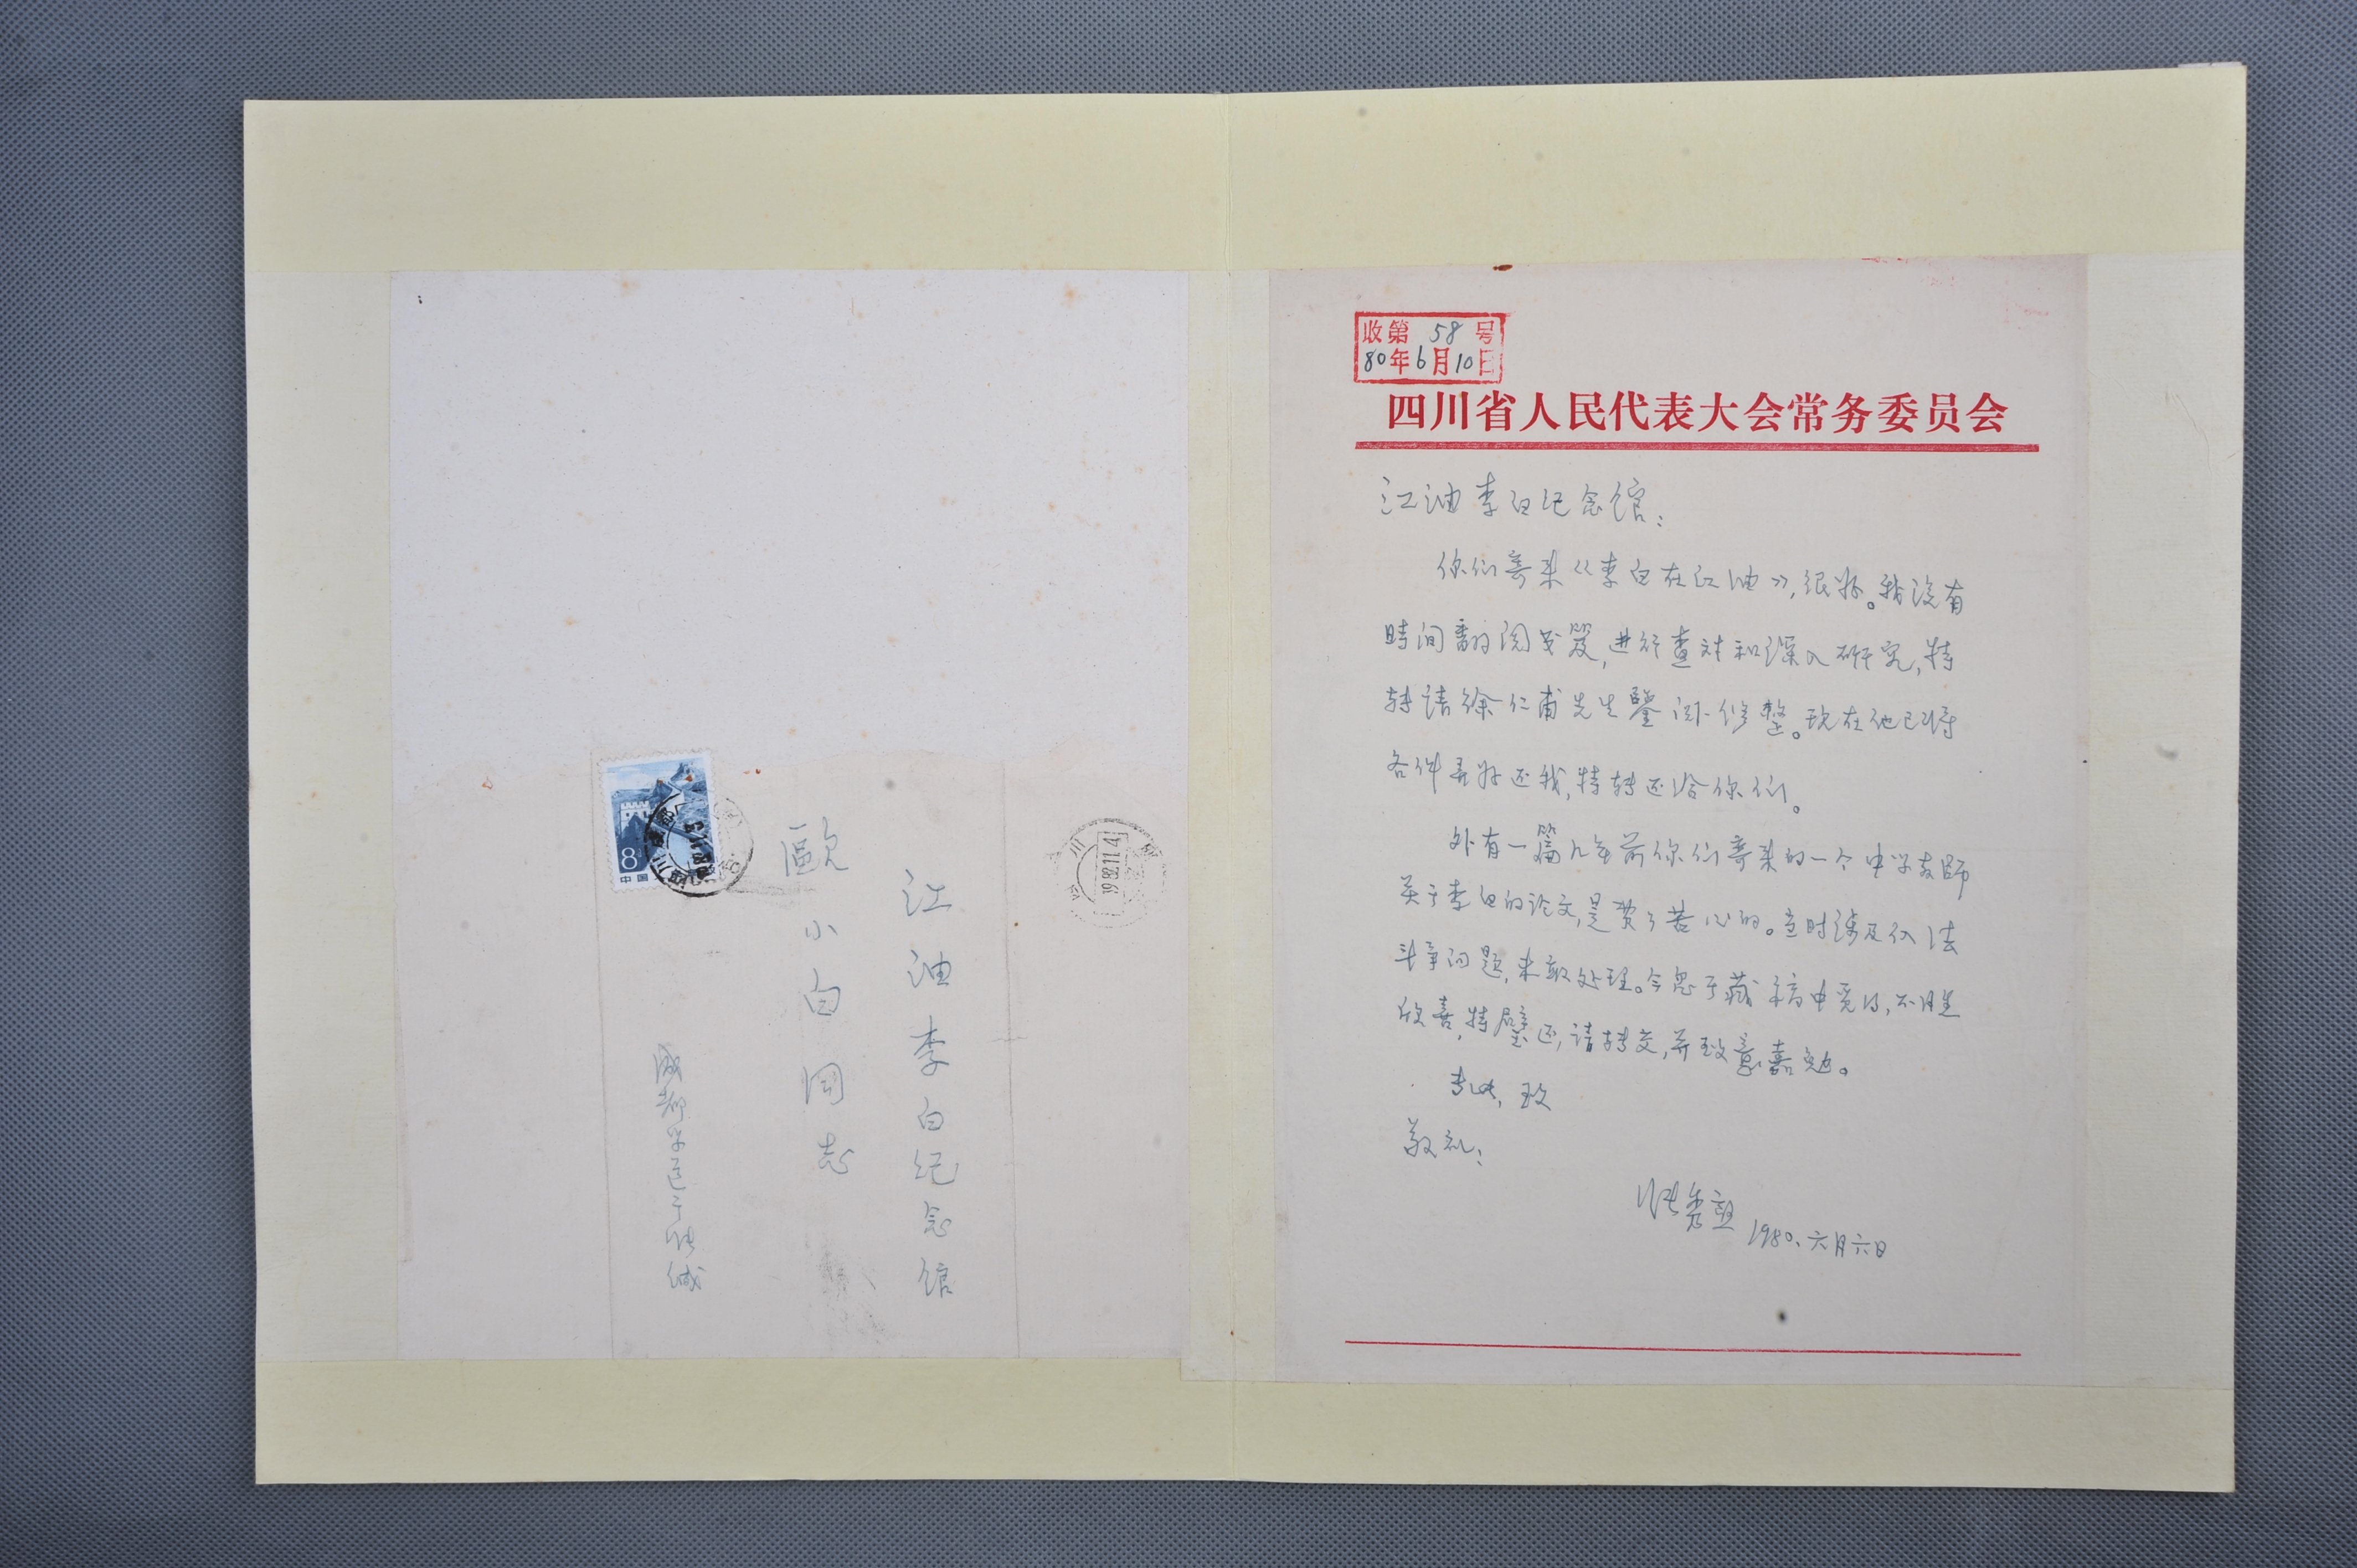 收第 58 号
80年6月10日
四川省人民代表大会常务委员会
江油李白纪念馆：
你们寄来《李白在江油》，很好。我没有
時间翻阅戋笺，进行查对和深入研究，特
转请徐仁甫先生鑒阅修整。现在他已将
各件弄好还我，特转还给你们。
外有一篇几年前你们寄来的一个中学教師
关于李白的论文，是费了苦心的。当时涉及儒法
斗争问题，未敢处理。今忽于藏稿中觅得，不胜
欣喜，特璧还，请转交，并致意嘉勉。
专此，致
敬礼！
张秀熟 1980.六月六日
江油李白纪念馆
歐小白同志
成都学道街
8
中国
1982.11.4